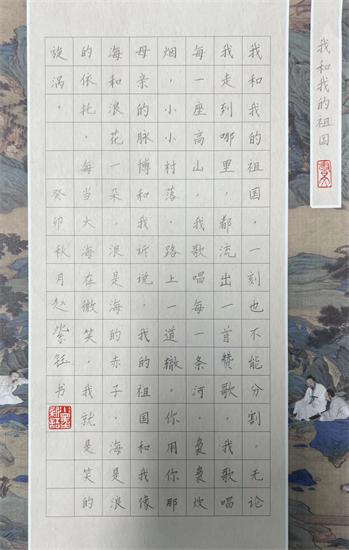 我和我的祖国
我和我的祖国，一刻也不能分割，无论
我走到哪里，都流出一首赞歌，我歌唱
每一座高山，我歌唱每一条河，袅袅炊
烟，小小村落，路上一道辙，你用你那
母亲的脉博和我诉说，我的祖国和我像
海和浪花一朵，浪是海的赤子，海是浪
的依托，每当大海在微笑，我就是笑的
旋涡，癸卯秋月赵紫钰书